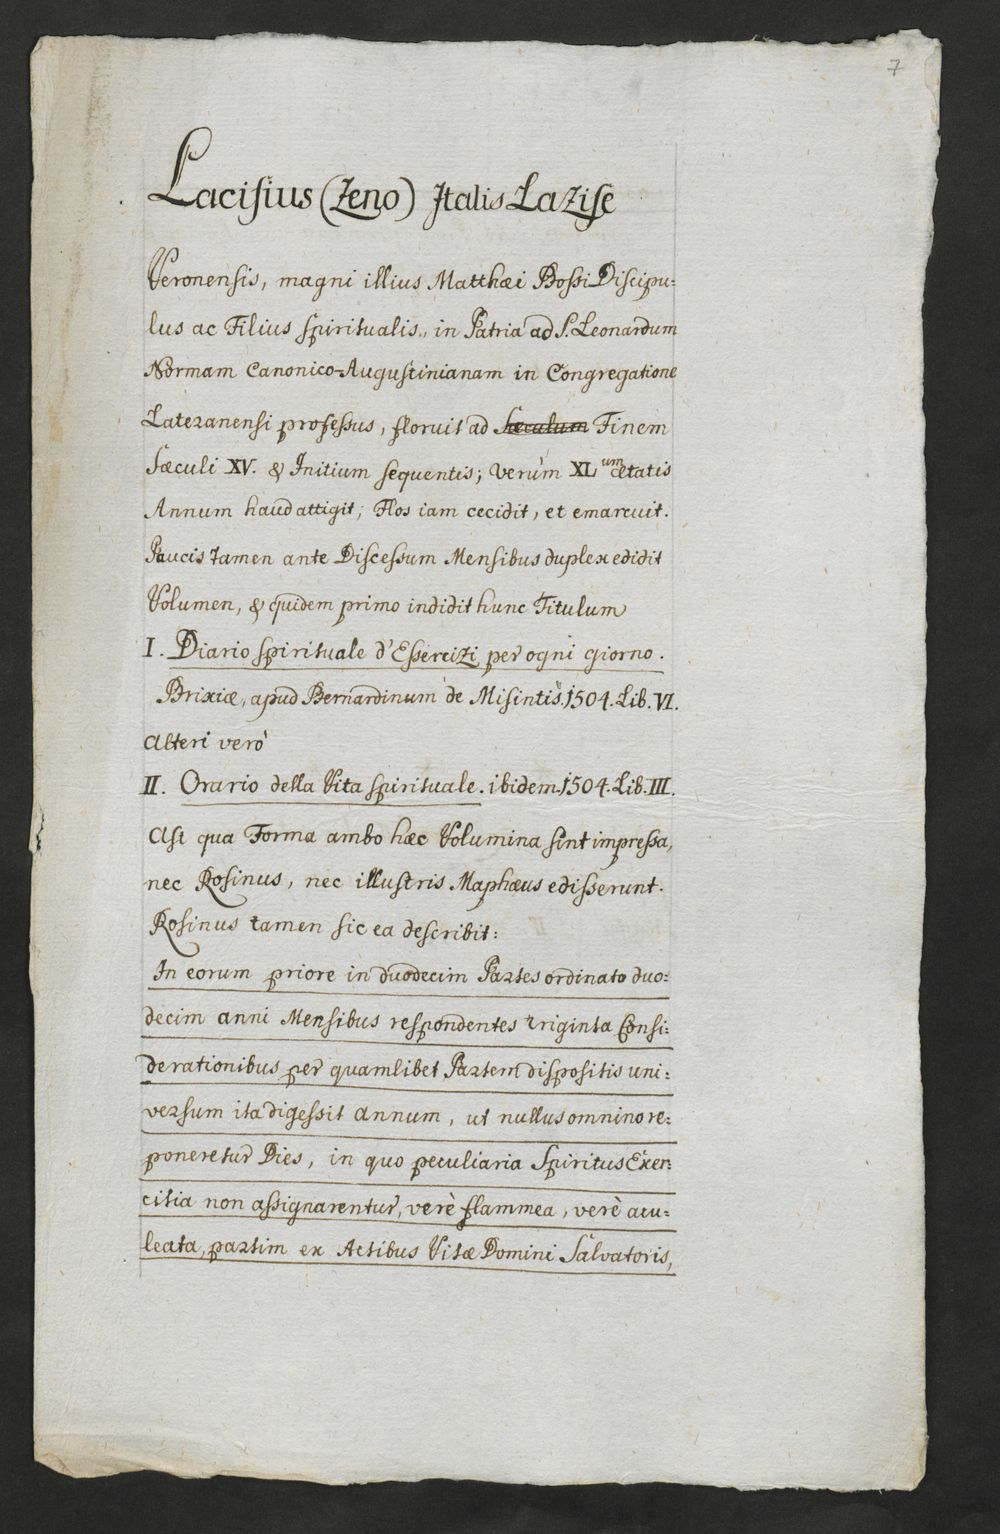 7
Lacisius (Zeno) Italis Lazise
Veronensis, magni illius Matthæi Bossi Discipu:
lus ac Filius spiritualis, in Patria ad S. Leonardum
Normam Canonico-Augustinianam in Congregatione
Lateranensi professus, floruit ad Sæculum Finem
Sæculi XV. & Initium sequentis; verum XLum ætatis
Annum haud attigit; Flos iam cecidit, et emarcuit.
Paucis tamen ante Discessum Mensibus duplex edidit
Volumen, & quidem primo indidit hunc Titulum
I. Diario spirituale d'Essercizi per ogni giorno.
Brixiæ, apud Bernardinum de Misintis. 1504. Lib. VI.
Alteri verò
II. Orario della Vita spirituale. ibidem. 1504. Lib. III.
Ast qua Forma ambo hæc Volumina sint impressa,
nec Rosinus, nec illustris Maphæus edisserunt.
Rosinus tamen sic ea describit:
In eorum priore in duodecim Partes ordinato duo:
decim anni Mensibus respondentes triginta Consi:
derationibus per quamlibet Partem dispositis uni:
versum ita digessit annum, ut nullus omnino re:
poneretur Dies, in quo peculiaria Spiritus Exer:
citia non assignarentur, verè flammea, verè acu:
leata, partim ex Actibus Vitæ Domini Salvatoris,